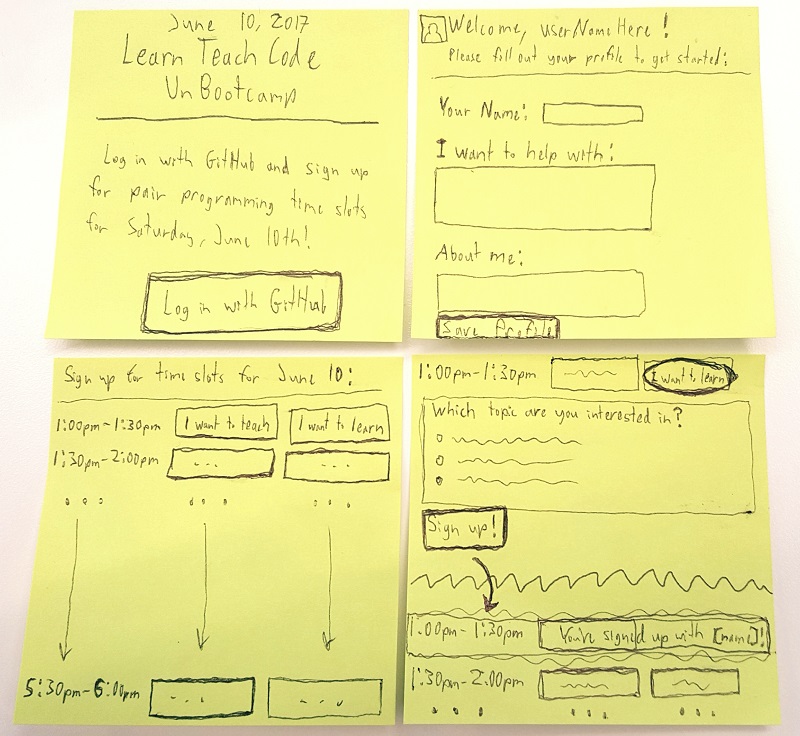 June 10, 2017
Learn Teach Code
UnBootcamp
Log in with GitHub and sign up
for pair programming time slots
for Saturday, June 10th!
Log in with GitHub
Welcome, userNameHere!
Please fill out your profile to get started:
Your Name:
I want to help with:
About me:
Save Profile
Sign up for time slots for June 10:
1:00pm-1:30pm I want to teach I want to learn
1:30pm-2:00pm ... ...
... ... ...
5:30pm-6:00pm ... ...
1:00pm-1:30pm I want to learn
Which topic are you interested in?
Sign up!
1:00pm-1:30pm You're signed up with [name]!
1:30pm-2:00pm
... ... ...